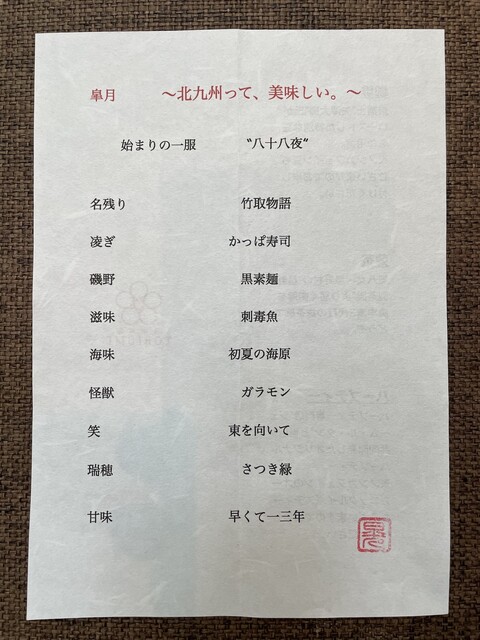 皐月 ～北九州って、美味しい。～
始まりの一服 〝八十八夜〟
名残り 竹取物語
凌ぎ かっぱ寿司
磯野 黒素麺
滋味 刺毒魚
海味 初夏の海原
怪獣 ガラモン
笑 東を向いて
瑞穂 さつき緑
甘味 早くて一三年